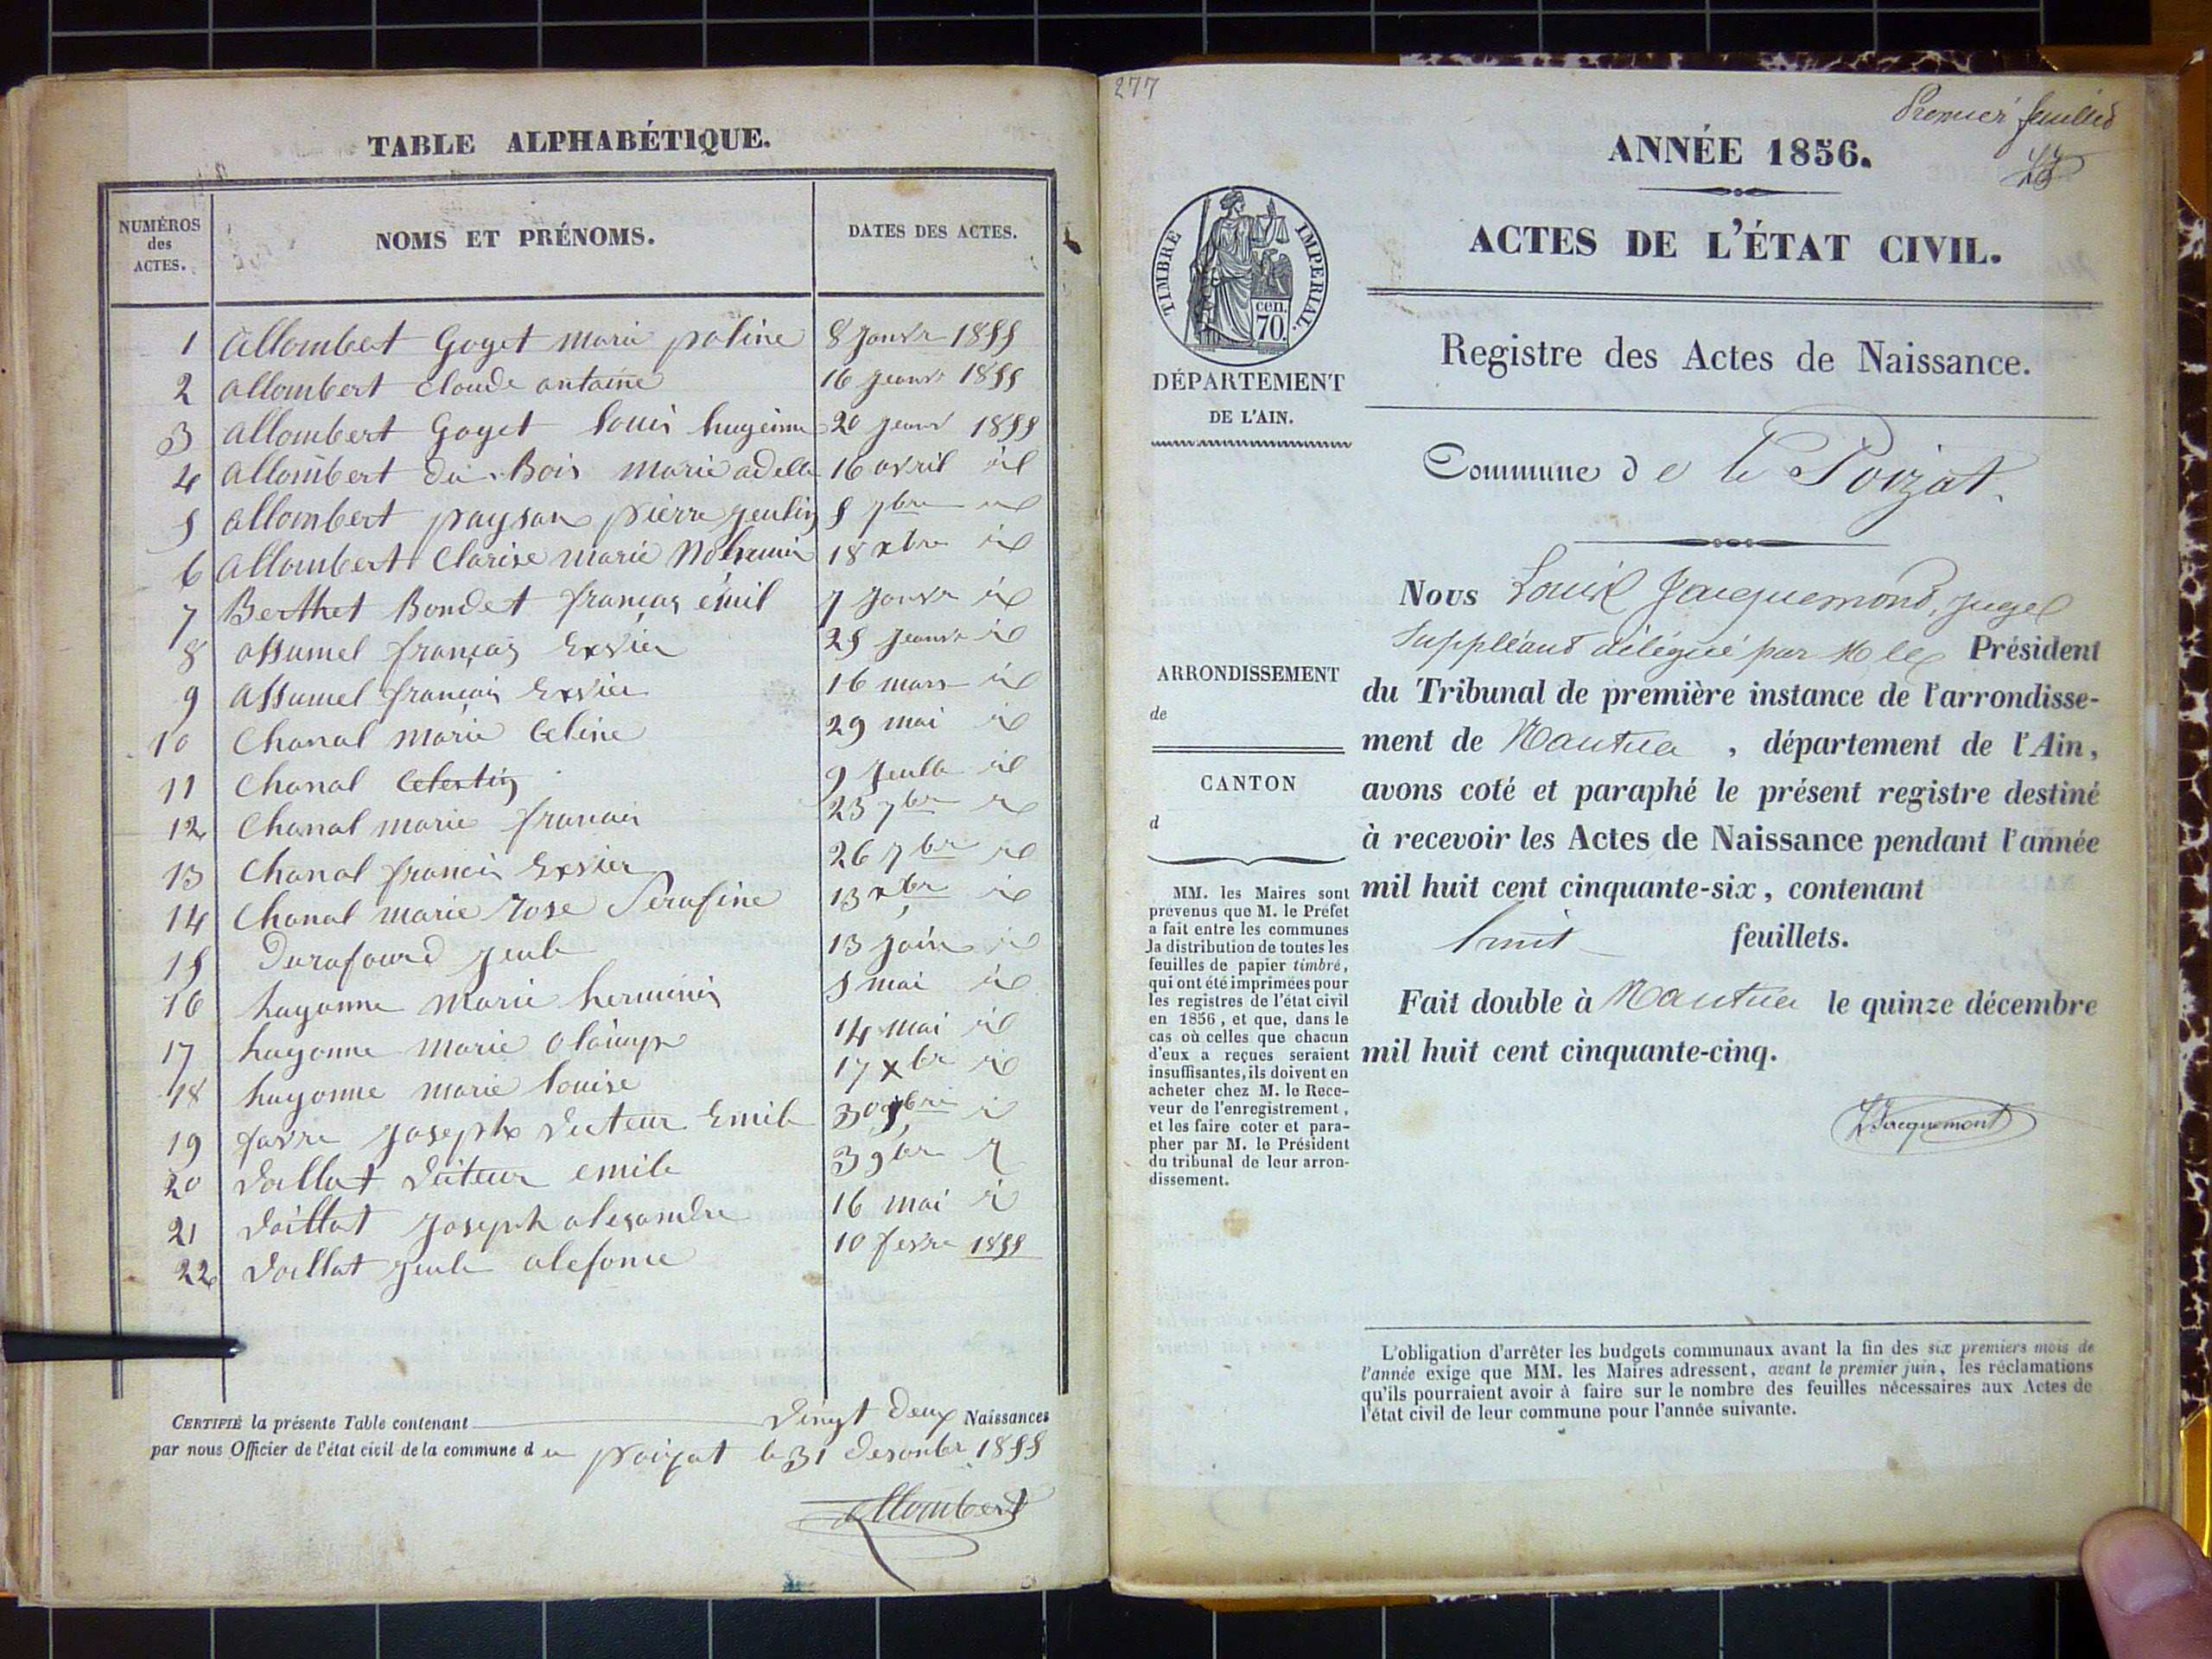 TABLE ALPHABÉTIQUE.
NUMÉROS des ACTES.
NOMS ET PRÉNOMS.
DATES DES ACTES.
1 Allombert Goyet Marie poline 8 Janvr 1855
2 allombert Claude antoine 16 Jeanvr 1855
3 allombert Goyet louis hugeinne 20 Jeanv 1855
4 allombert du Bois Marie adelle 16 avril id
5 allombert paysan pierre jeulin 5 7bre id
6 allombert Clarise marie 18 xbre id
7 Berthet Bondet françois émil 7 Janvr id
8 assumel françois Exvier 25 Jeanvr id
9 assumel françois Exvier 16 mars id
10 Chanal Marie Celine 29 mai id
11 Chanal Celestin 9 Jeulle id
12 Chanal marie francois 23 7bre id
13 Chanal francois Exvier 26 7bre id
14 Chanal marie rose Serafine 13 xbre id
15 Durafourd jeule 13 join id
16 hugonne Marie herminis 5 mai id
17 hugonne Marie olaimpe 14 mai id
18 hugonne marie louise 17 xbr id
19 favre Joseph Victeur Emile 30
20 Vaillat Victeur emile 3 9bre
21 Vaillat Joseph alexandre 16 mai id
22 Vaillat jeule alefonse 10 fevre 1855
CERTIFIÉ la présente Table contenant Vingt deux Naissances
par nous Officier de l'état civil de la commune d u poizat le 31 desembre 1855
allombert
277
Premier feuillet
LJ
ANNÉE 1856.
ACTES DE L'ÉTAT CIVIL.
TIMBRE IMPÉRIAL.
cen.
70.
DÉPARTEMENT
DE L'AIN.
Registre des Actes de Naissance.
Commune de le Poizat.
ARRONDISSEMENT
de
CANTON
d
MM. les Maires sont
prévenus que M. le Préfet
a fait entre les communes
la distribution de toutes les
feuilles de papier timbré,
qui ont été imprimées pour
les registres de l'état civil
en 1856, et que, dans le
cas où celles que chacun
d'eux a reçues seraient
insuffisantes, ils doivent en
acheter chez M. le Rece-
veur de l'enregistrement,
et les faire coter et para-
pher par M. le Président
du tribunal de leur arron-
dissement.
Nous Louis Jacquemond, Juge
Suppléant délégué par M le Président
du Tribunal de première instance de l'arrondisse-
ment de Nantua, département de l'Ain,
avons coté et paraphé le présent registre destiné
à recevoir les Actes de Naissance pendant l'année
mil huit cent cinquante-six, contenant
huit feuillets.
Fait double à Nantua le quinze décembre
mil huit cent cinquante-cinq.
LJacquemont
L'obligation d'arrêter les budgets communaux avant la fin des six premiers mois de
l'année exige que MM. les Maires adressent, avant le premier juin, les réclamations
qu'ils pourraient avoir à faire sur le nombre des feuilles nécessaires aux Actes de
l'état civil de leur commune pour l'année suivante.